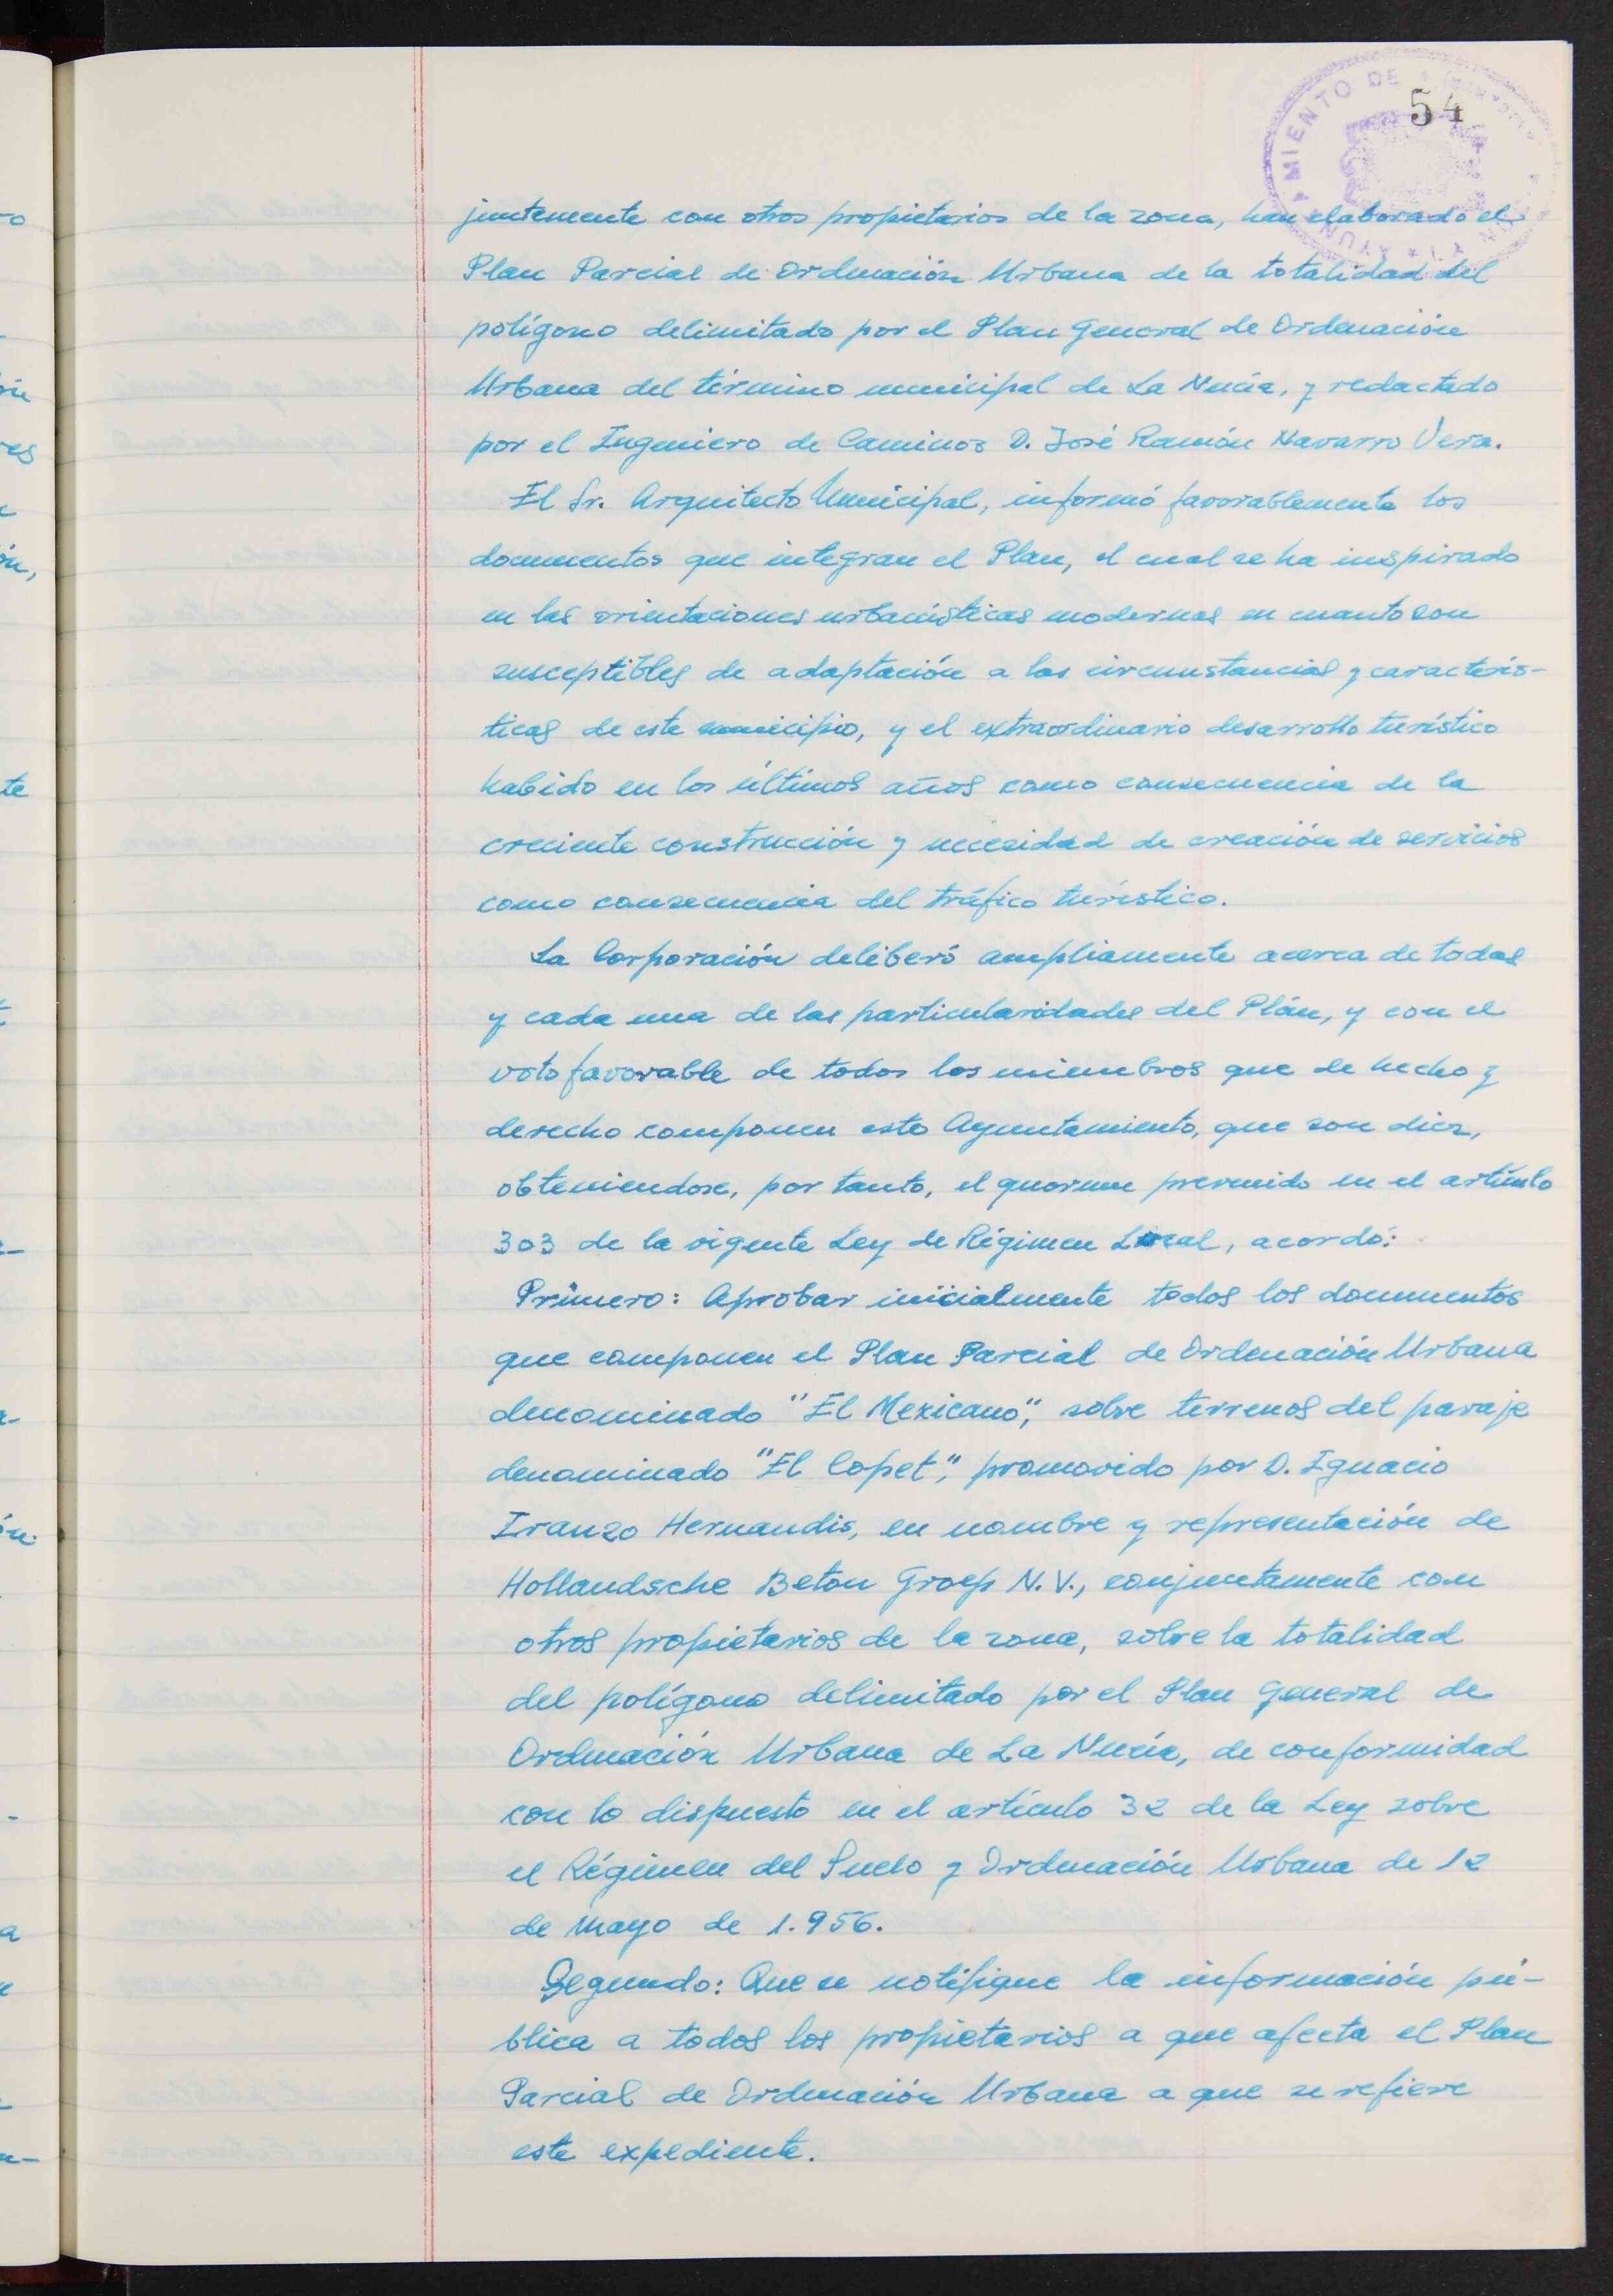 54
MIENTO DE
AYUN
juntamente con otros propietarios de la zona, han elaborado el
Plan Parcial de Ordenación Urbana de la totalidad del
polígono delimitado por el Plan General de Ordenación
Urbana del término municipal de La Nucía, y redactado
por el Ingeniero de Caminos D. José Ramón Navarro Vera.
El Sr. Arquitecto Municipal, informó favorablemente los
documentos que integran el Plan, el cual se ha inspirado
en las orientaciones urbanísticas modernas en cuanto son
susceptibles de adaptación a las circunstancias y caracterís-
ticas de este municipio, y el extraordinario desarrollo turístico
habido en los últimos años como consecuencia de la
creciente construcción y necesidad de creación de servicios
como consecuencia del tráfico turístico.
La Corporación deliberó ampliamente acerca de todas
y cada una de las particularidades del Plán, y con el
voto favorable de todos los miembros que de hecho y
derecho componen este Ayuntamiento, que son diez,
obteniendose, por tanto, el quorum prevenido en el artículo
303 de la vigente Ley de Régimen Local, acordó:
Primero: Aprobar inicialmente todos los documentos
que componen el Plan Parcial de Ordenación Urbana
denominado "El Mexicano", sobre terrenos del paraje
denominado "El Copet", promovido por D. Ignacio
Iranzo Hernandis, en nombre y representación de
Hollandsche Beton Groep N.V., conjuntamente con
otros propietarios de la zona, sobre la totalidad
del polígono delimitado por el Plan General de
Ordenación Urbana de La Nucía, de conformidad
con lo dispuesto en el artículo 32 de la Ley sobre
el Régimen del Suelo y Ordenación Urbana de 12
de Mayo de 1.956.
Segundo: Que se notifique la información pú-
blica a todos los propietarios a que afecta el Plan
Parcial de Ordenación Urbana a que se refiere
este expediente.